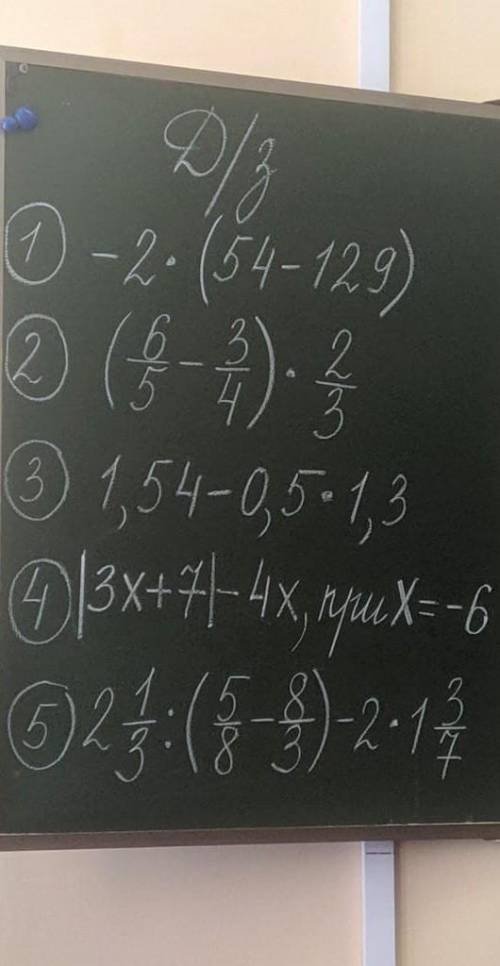 Д/з
1 -2·(54-129)
2 (6/5 - 3/4)·2/3
3 1,54-0,5·1,3
4 |3x+7|-4x, при x=-6
5 2 1/3:(5/8-8/3)-2·1 3/7